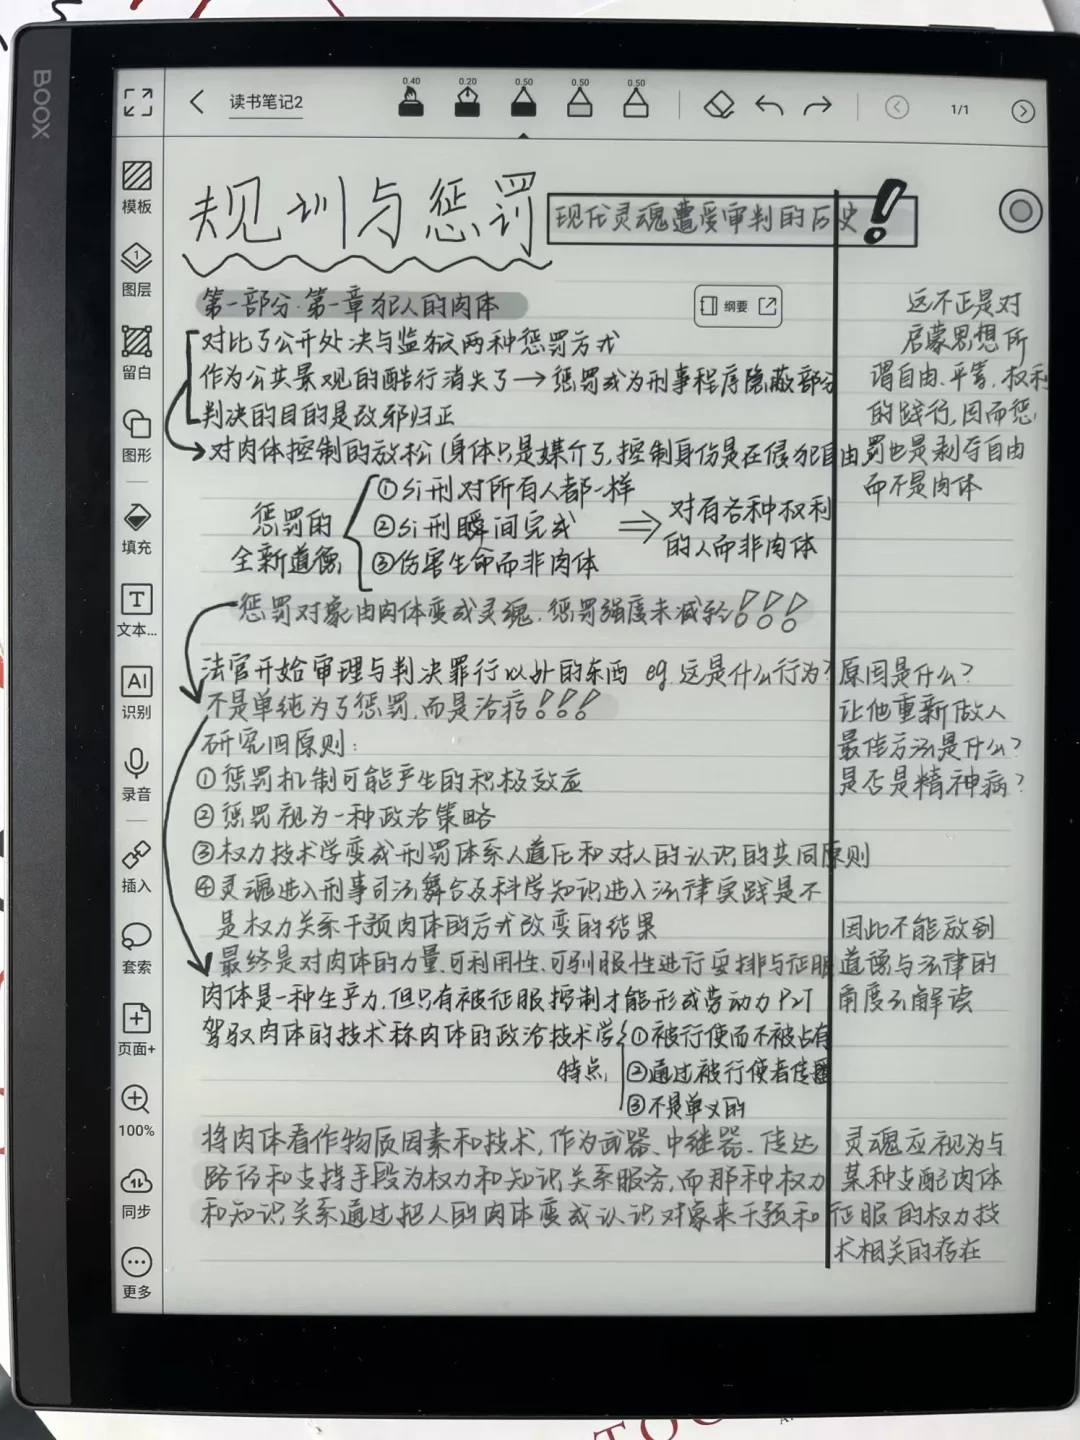 BOOX
读书笔记2
0.40
0.20
0.50
0.50
0.50
1/1
模板
图层
留白
图形
填充
文本...
AI
识别
录音
插入
套索
页面+
100%
同步
更多
规训与惩罚
现代灵魂遭受审判的历史!
纲要
第一部分.第一章犯人的肉体
对比了公开处决与监狱两种惩罚方式
作为公共景观的酷行消失了→惩罚成为刑事程序隐蔽部分
判决的目的是改邪归正
对肉体控制的放松(身体只是媒介了,控制身份是在侵犯自由
这不正是对
启蒙思想所
谓自由.平等.权利
的践行,因而惩
罚也是剥夺自由
而不是肉体
惩罚的
全新道德
①si刑对所有人都一样
②si刑瞬间完成
③伤害生命而非肉体
⇒对有各种权利
的人而非肉体
惩罚对象由肉体变成灵魂.惩罚强度未减轻!!!
法官开始审理与判决罪行以外的东西 eg.这是什么行为?原因是什么?
不是单纯为了惩罚,而是治病!!!
让他重新做人
最佳方法是什么?
是否是精神病?
研究四原则:
①惩罚机制可能产生的积极效应
②惩罚视为一种政治策略
③权力技术学变成刑罚体系人道化和对人的认识的共同原则
④灵魂进入刑事司法舞台及科学知识进入法律实践是不
是权力关系干预肉体的方式改变的结果
最终是对肉体的力量.可利用性.可驯服性进行安排与征服
因此不能放到
道德与法律的
角度去解读
肉体是一种生产力.但只有被征服控制才能形成劳动力 P27
驾驭肉体的技术称肉体的政治技术学
特点
①被行使而不被占有
②通过被行使者传播
③不是单义的
将肉体看作物质因素和技术,作为武器、中继器、传达
路径和支持手段为权力和知识关系服务,而那种权力
和知识关系通过把人的肉体变成认识对象来干预和
灵魂应视为与
某种支配肉体
征服的权力技
术相关的存在